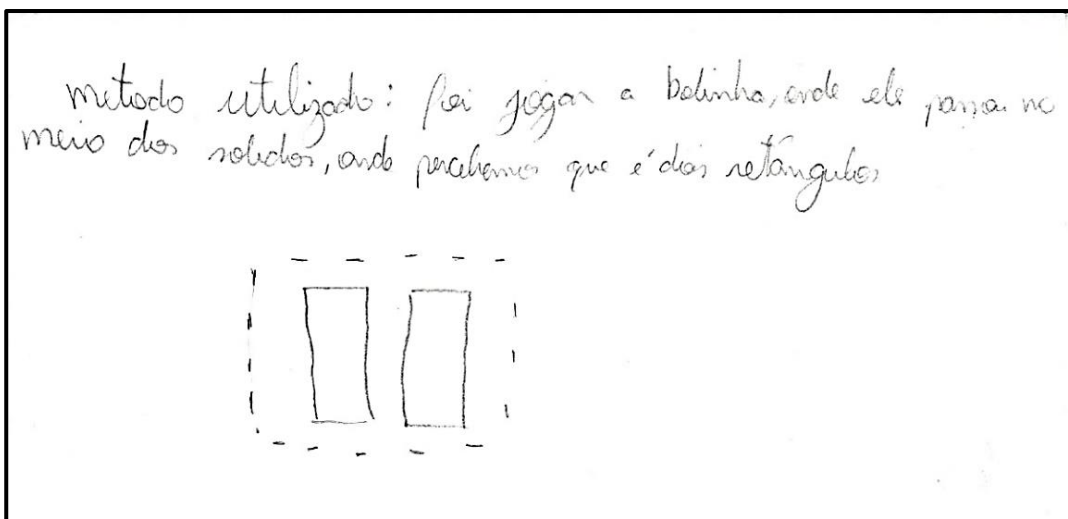 metodo utilizado: foi jogar a bolinha, onde ele passou no
meio dos solidos, onde percebemos que é dois retângulos